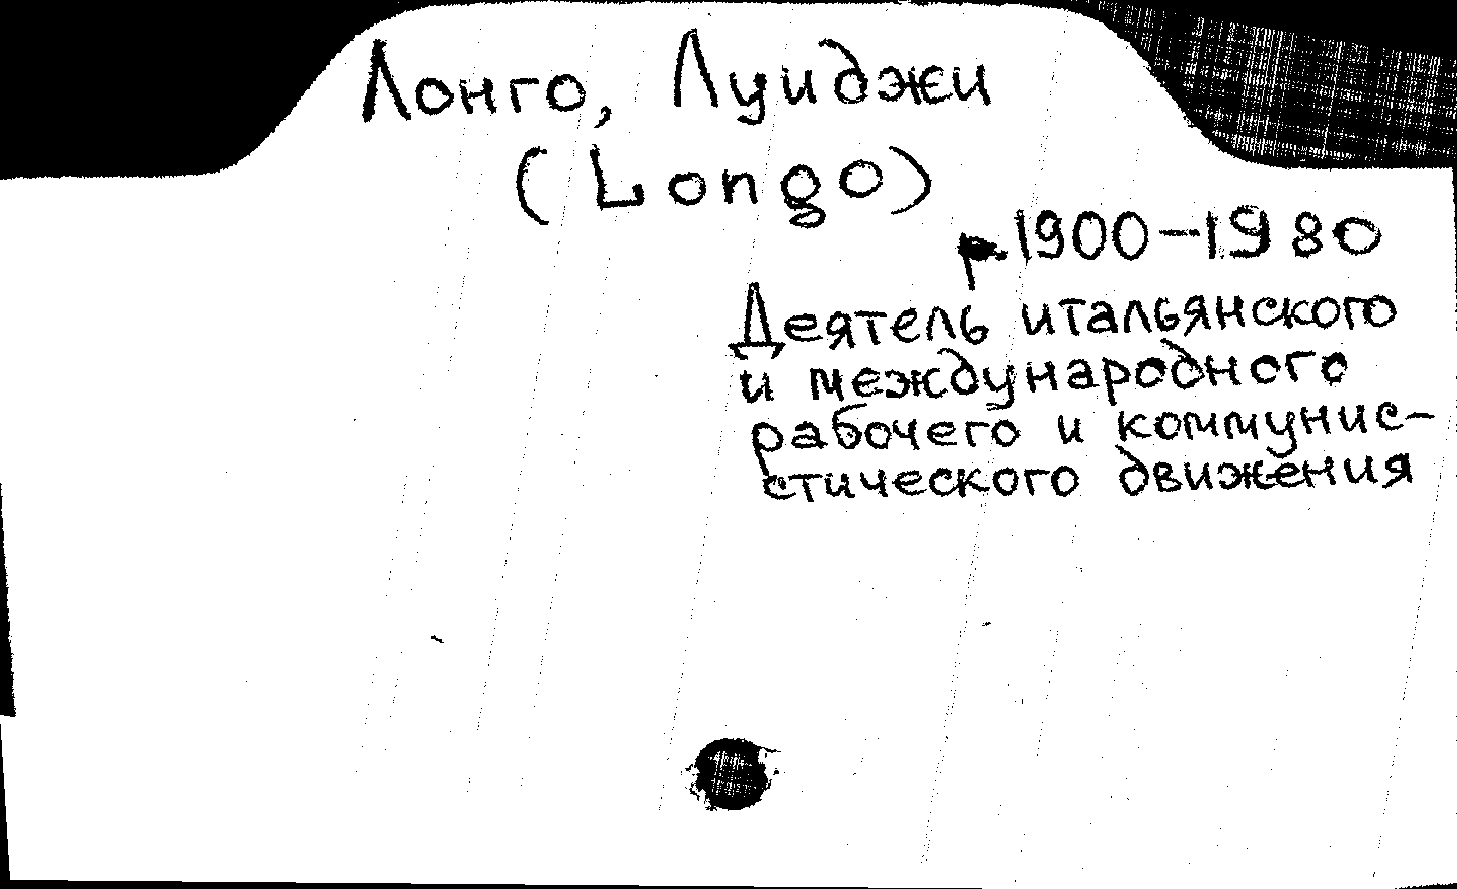 Лонго, Луиджи
(Longo)
р. 1900-1980
Деятель итальянского
и международного
рабочего и коммунис-
стического движения